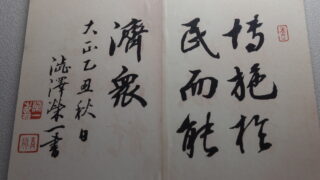 博施於
民而能
濟衆
大正乙丑秋日
澁澤榮一書